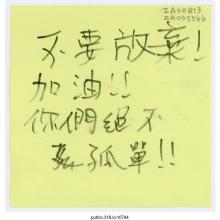 IA00813
IA00556b
不要放棄!
加油!!
你們絕不
孤單!!
public.318.io/0784